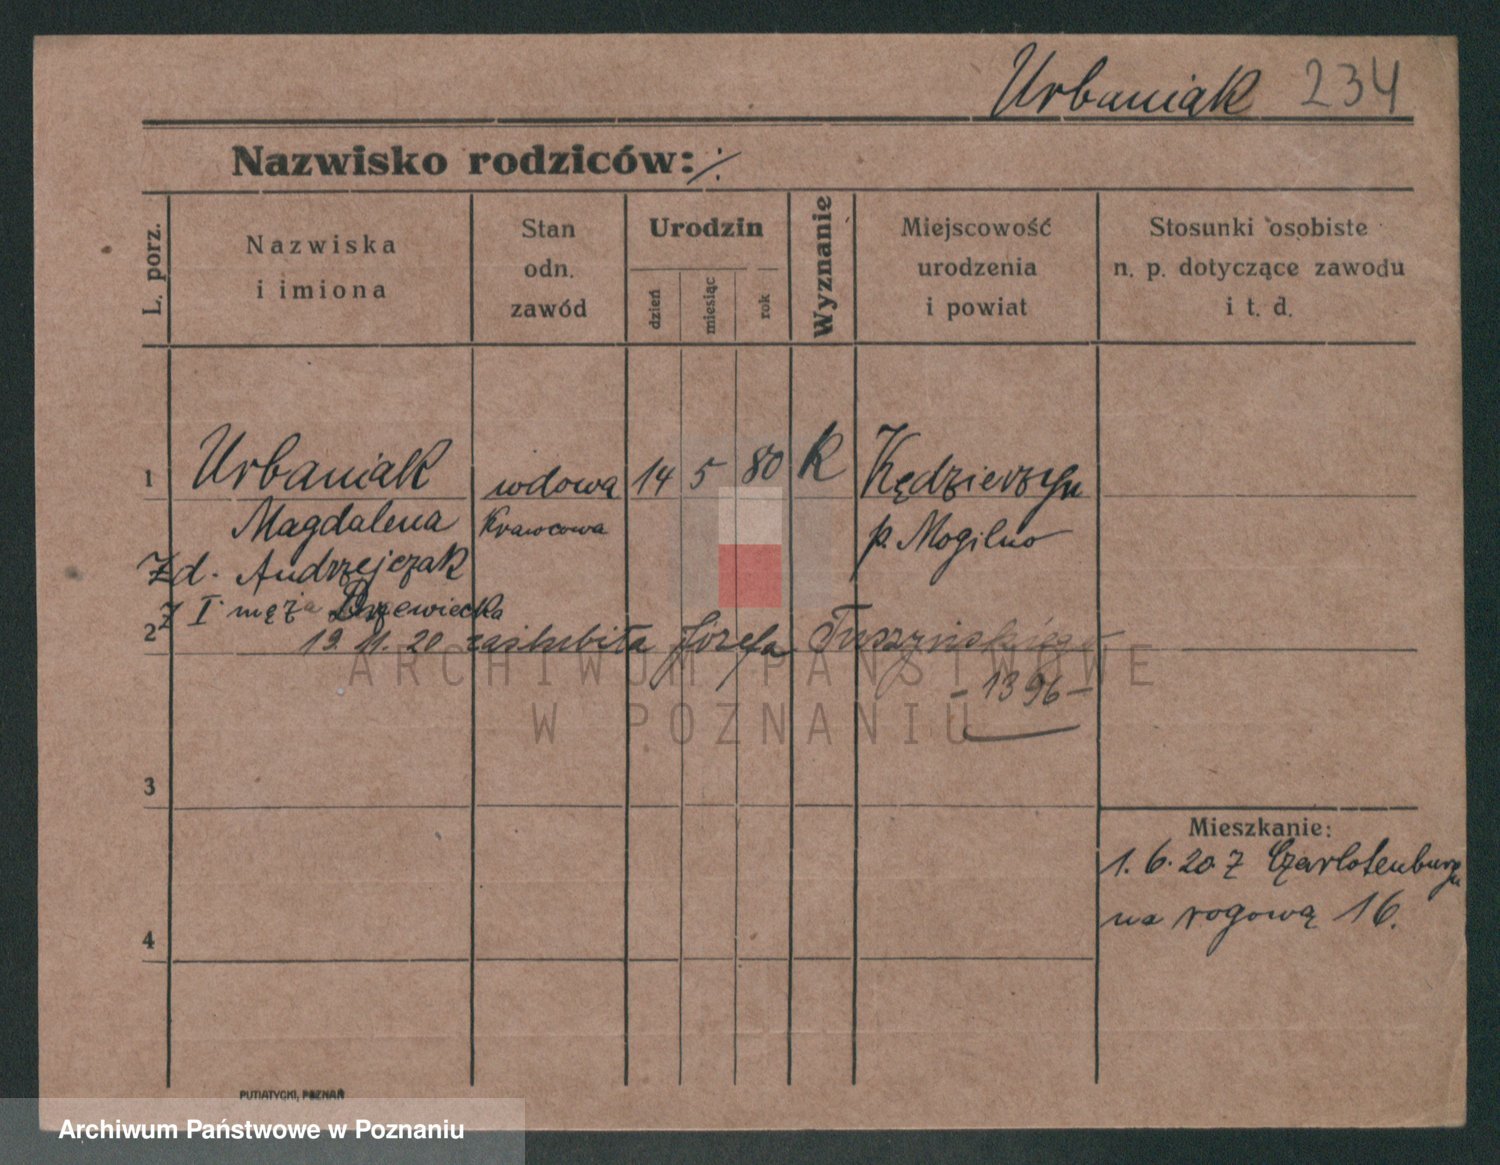 Urbaniak 234
Nazwisko rodziców: ·/·
L. porz.
Nazwiska
i imiona
Stan
odn.
zawód
Urodzin
dzień
miesiąc
rok
Wyznanie
Miejscowość
urodzenia
i powiat
Stosunki osobiste
n. p. dotyczące zawodu
i t. d.
1 Urbaniak wdowa 14 5 80 k Kędzierzyn
Magdalena Krawcowa p. Mogilno
Zd. Andrzejczak
z I męża
2 19. 11. 20 zaślubiła Józefa Tuszyńskiego
- 1396 -
ARCHIWUM PAŃSTWOWE
W POZNANIU
3
Mieszkanie:
1. 6. 20 z Czarlotenburgu
na rogową 16.
4
PUTIATYCKI, POZNAŃ
Archiwum Państwowe w Poznaniu